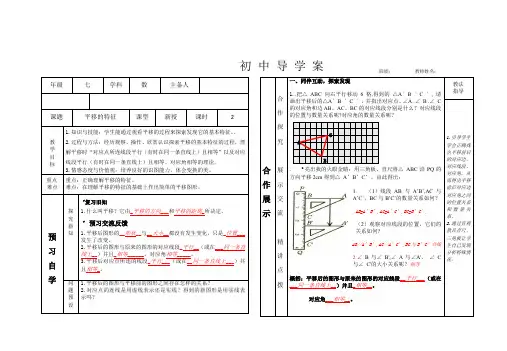 初 中 导 学 案
班级： 教师姓名：
年级 七 学科 数 主备人
课题 平移的特征 课型 新授 课时 2
教学目标
1.知识与技能：学生能通过观看平移的过程来探索发现它的基本特征。
2.过程与方法：经历观察、操作、欣赏认识探索平移的基本性质的过程，理
解平移时“对应点所连线段平行（有时在同一条直线上）且相等”以及对应
线段平行（有时在同一条直线上）且相等、对应角相等的理论。
3.情感态度与价值观：培养良好的识图能力、体会变换的美。
重点
难点
重点：正确理解平移的特征。
难点：在理解平移的特征的基础上作出简单的平移图形。
预习自学
*复习旧知
1.什么叫平移？它由 平移的方向 和 平移的距离 所决定。
* 预习交流反馈
1.平移后图形的 形状 与 大小 都没有发生变化，只是 位置
发生了改变。
2.平移后的图形与原来的图形的对应线段 平行 （或在 同一条直
线上 ）并且 相等 ，对应角 相等 。
3.平移后对应点所连的线段 平行 （或在 同一条直线上 ）并
且 相等 。
问题预设
1.平移后的图形与平移前图形之间存在怎样的关系？
2.对应点的连线是用线表示还是虚线？得到的新图形是用实线表
示吗？
合作展示
合作探究
展示交流
精讲点拨
一、同伴互助，探索发现
1.把△ ABC 向右平行移动 6 格,得到的 △A′B′C′，请
画出平移后的△A′B′C′；并指出对应点。∠A、∠B、∠C
的对应角和边 AB、AC、BC 的对应线段分别是什么？对应线段
的位置与数量关系呢?对应角的数量关系呢?
1. （1）线段 AB 与 A′B′,AC 与
A′C′，BC 与 B′C′的数量关系如何？
（2）观察对应线段的位置，它们的
关系如何？
概括：平移后的图形与原来的图形的对应线段 平行 （或在
同一条直线上 ）并且 相等 ，
对应角 相等 。
教法指导